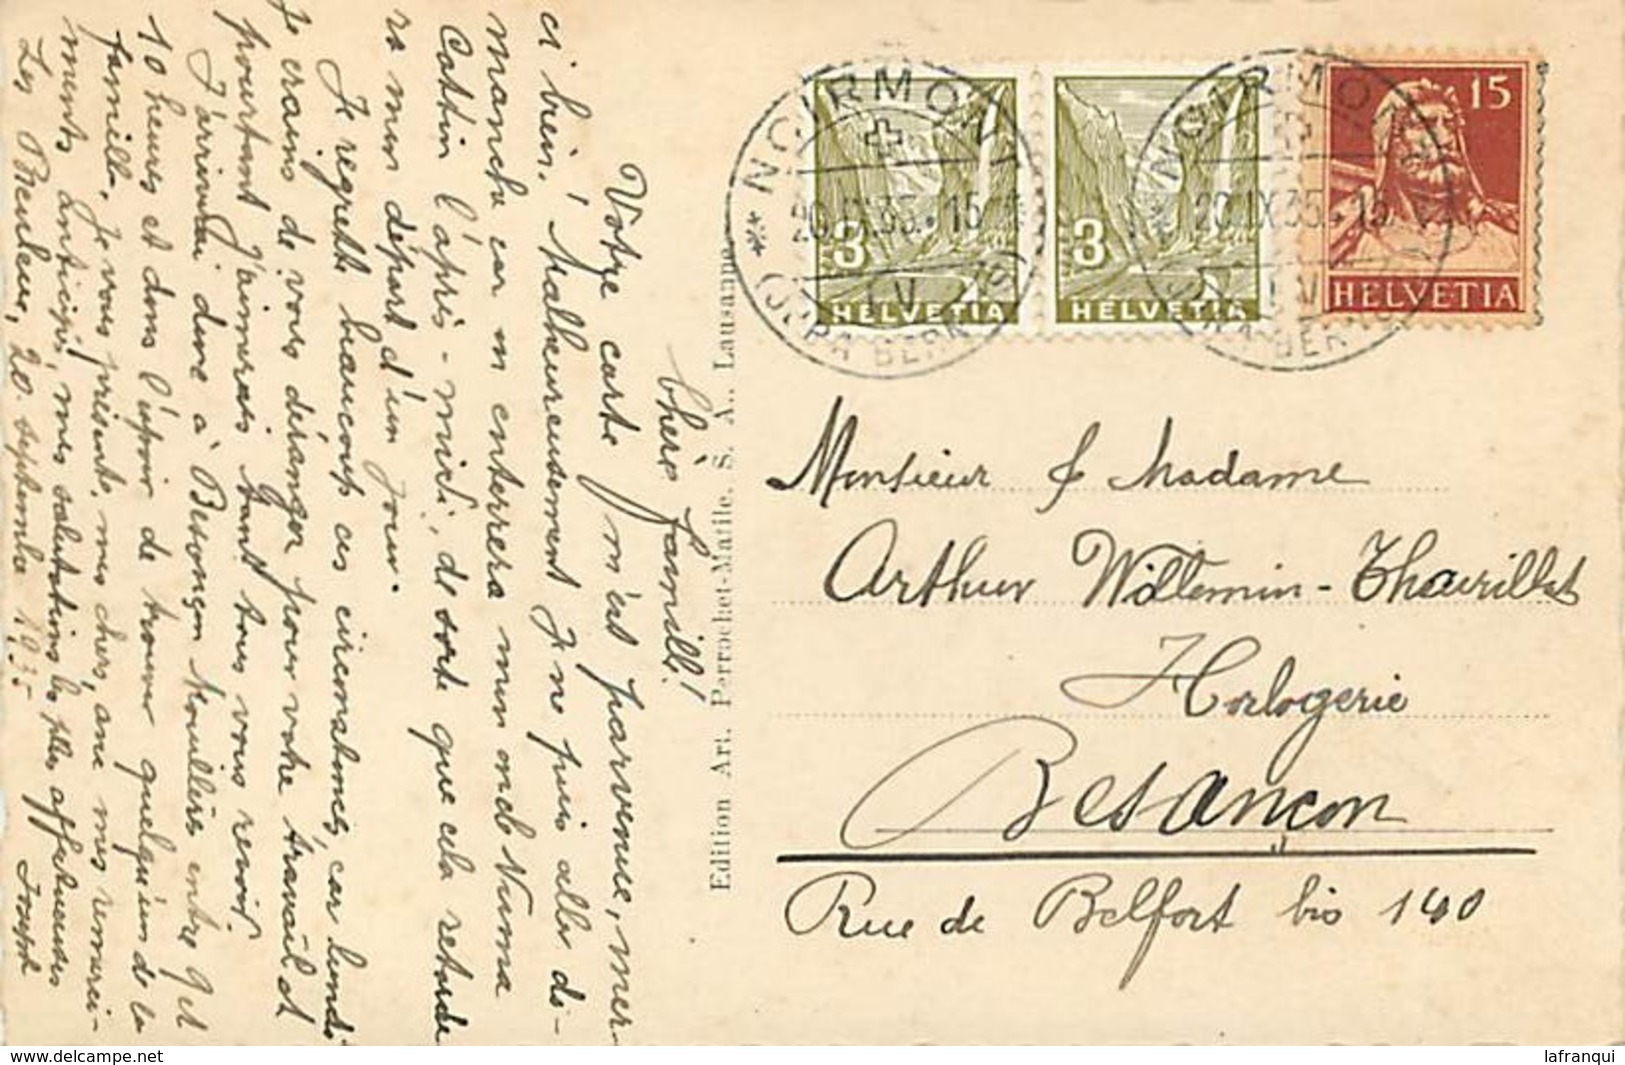 Chère famille!
Votre carte m'est parvenue, mer-
ci bien! Malheureusement je ne puis aller di-
manche car on enterrera mon oncle Numa
Cattin l'après-midi, de sorte que cela retarde
ra mon départ d'un jour.
Je regrette beaucoup ces circonstances, car lundi
je crains de vous déranger pour votre travail et
pourtant j'aimerais tant tous vous revoir.
J'arriverai donc à Besançon Mouillère entre 9 et
10 heures et dans l'espoir de trouver quelqu'un de la
famille, je vous présente, mes chers, avec mes remerci-
ments anticipés, mes salutations les plus affectueuses
Les Breuleux, 20. septembre 1935 Joseph
Edition Art. Perrochet-Matile, S. A., Lausanne
NOIRMONT
20.IX.35.15
(JURA BERNOIS)
3
HELVETIA
3
HELVETIA
NOIRMONT
20.IX.35.15
(JURA BERNOIS)
15
HELVETIA
Monsieur & Madame
Arthur Willemin-Thaurillat
Horlogerie
Besançon
Rue de Belfort bis 140
lafranqui